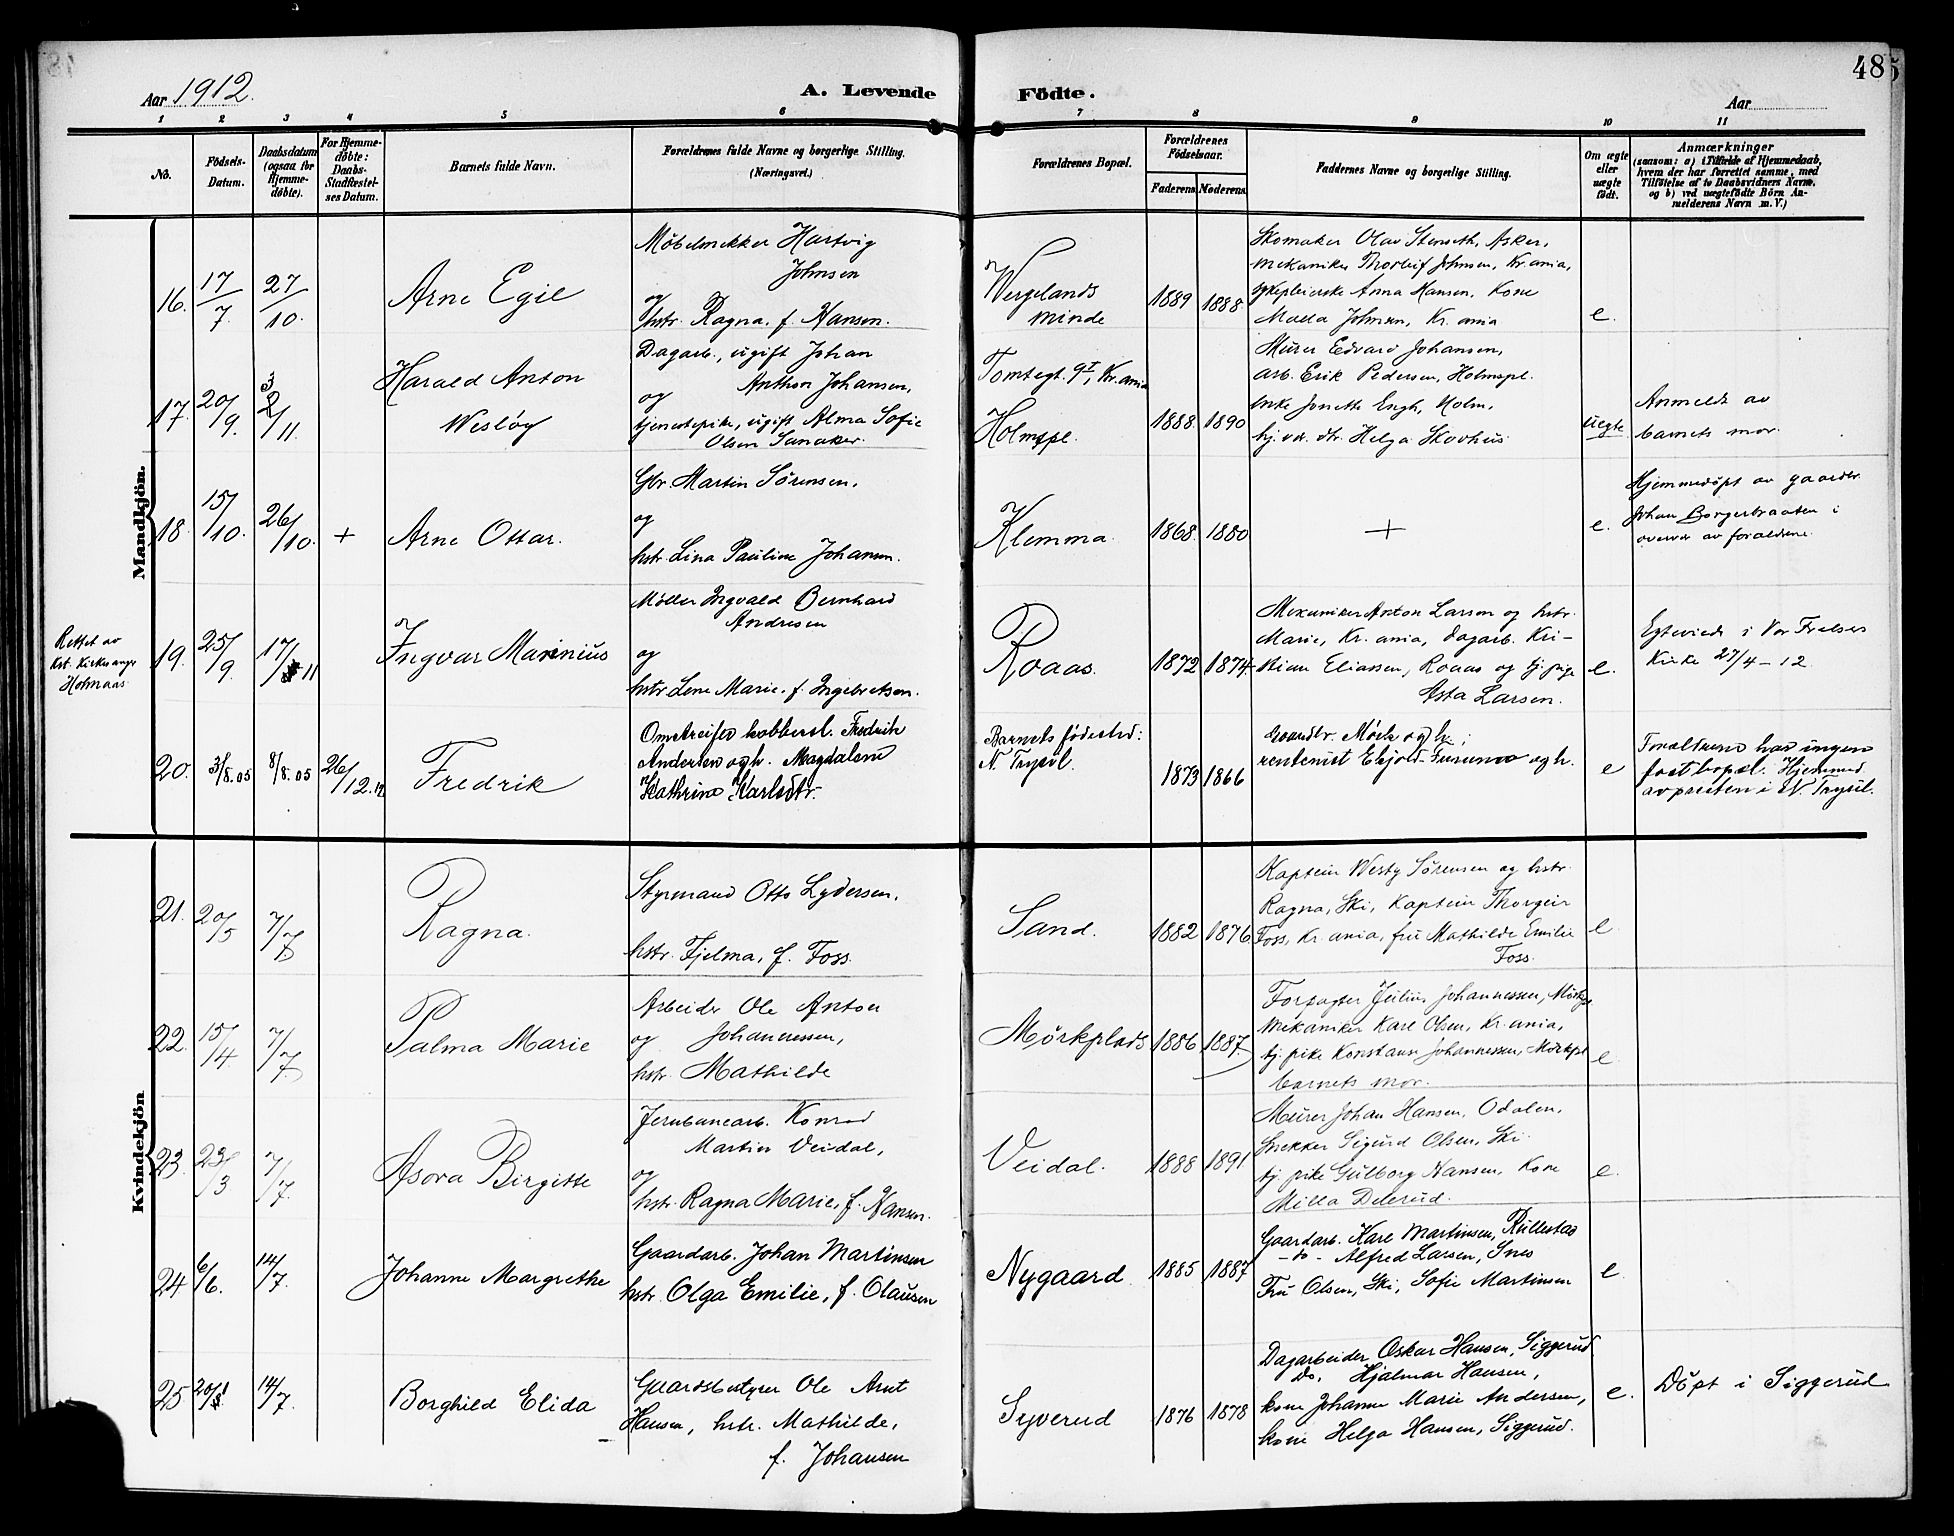 485
Aar 1912.
A. Levende Födte.
Aar
1 2 3 4 5 6 7 8 9 10 11
No.
Födsels-Datum.
Daabsdatum (ogsaa for Hjemme-döbte).
For Hjemme-döbte: Daabs-Stadfæstel-ses Datum.
Barnets fulde Navn.
Forældrenes fulde Navne og borgerlige Stilling. (Næringsvei.)
Forældrenes Bopæl.
Forældrenes Födselsaar.
Faderens. Moderens.
Faddernes Navne og borgerlige Stilling.
Om ægte eller uægte födt.
Anmærkninger
(saasom: a) i Tilfælde af Hjemmedaab, hvem der har forrettet samme, med Tilföielse af to Daabsvidners Navne, og b) ved uægtefödte Börn An-melderens Navn m. V.)
Mandkjön.
16. 17/7. 27/10.
Arne Egil
Møbelsnekker Hartvig
Johnsen
og
hstr. Ragna, f. Hansen.
Vergelands
minde
1889 1888
Skomaker Olav Stenseth, Asker,
mekaniker Thorleif Johnsen, Kr.ania,
sykepleierske Anna Hansen, Kone
Johnsen, Kr.ania
e.
17. 20/9. 3/11.
Harald Anton
Wesløy
Dagarb., ugift Johan
Anthon Johansen,
og
tjenestepike, ugift Alma Sofie
Olsen Sanaker.
Tomtegt. 9 I, Kr.ania
Holmspl.
1888. 1890
Murer Edvard Johansen,
arb. Erik Pedersen, Holmspl.
enke Jonette Engh, Holm,
hj.v. dtr. Helga Skovhus
uegte
Anmeldt av
barnets mor.
18. 15/10. 26/10. +
Arne Ottar.
Gbr. Martin Sørensen,
og
hstr. Lina Pauline Johansen.
Klemma.
1868. 1880
+
e.
Hjemmedøpt av gaardbr.
Johan Borgerbraaten i
overvær av forældrene.
Rettet av
Kst. Kirkesanger
Holmaas
19. 25/9. 17/11
Ingvar Marinius
Møller Ingvald Bernhard
Andresen
og
hstr. Lene Marie, f. Ingebretsen.
Roaas.
1872 1874
Mekaniker Anton Larsen og hstr.
Marie, Kr.ania, dagarb. Kri-
stian Eliassen, Roaas og tj.pige
Asta Larsen.
e.
Egteviede i Vor Frelsers
Kirke 27/4-12.
20. 3/8.05 8/8.05 26/12.12
Fredrik
Omstreifer kobbersl. Fredrik
Andersen og h. Magdalene
Kathrine Karlsdtr.
Barnets fødested:
N. Trysil.
1873 1866
Gaardbr. Mørk og h.;
rentenist Furumo og h.
e
Forældrene har ingen
fast bopæl. Hjemmed.
av presten i N. Trysil.
Kvindekjön
21. 20/5 7/7.
Ragna.
Styrmand Otto Lydersen,
hstr. Fjelma, f. Foss.
Sand.
1882 1876
Kaptein Westy Sørensen og hstr.
Ragna, Ski, Kaptein Thorgeir
Foss, Kr.ania, fru Mathilde Emilie
Foss.
e
22. 15/4 7/7.
Palma Marie
Arbeider Ole Anton
og Johannessen,
hstr. Mathilde
Mörkplads
1886 1887.
Forpagter Julius Johannessen, Mörkpl.
mekaniker Karl Olsen, Kr.ania,
tj.pike Konstanse Johannessen, Mörkpl
barnets mor.
e
23. 23/3 7/7.
Asora Birgitte
Jernbanearb. Konrad
Martin Veidal,
og
hstr. Ragna Marie, f. Hansen.
Veidal.
1888 1891
Murer Johan Hansen, Odalen,
Snekker Sigurd Olsen, Ski.
tj.pike Gulborg Hansen, Kone
Milla Delerud.
e.
24 6/6. 14/7.
Johanne Margrethe
Gaardarb. Johan Martinsen
hstr. Olga Emilie, f. Olausen
Nygaard.
1885 1887
Gaardarb. Karl Martinsen, Rullestad
- do - Alfred Larsen, Ines
Fru Olsen, Ski, Sofie Martinsen
e
25 14/7.
Borghild Elida
Gaardsbestyrer Ole Arnt
Hansen, hstr. Mathilde,
f. Johansen
Syverud
1876 1878
Dagarbeider Oskar Hansen, Siggerud
Do. Hjalmar Hansen,
kone Johanne Marie Andersen,
kone Helga Hansen, Siggerud.
e.
Döpt i Siggerud